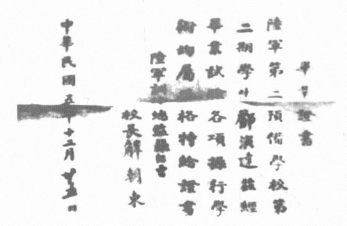 畢業證書
陸軍第二預備學校第
二期學生鄧演達茲經
畢業試各項操行學
術均屬格特給證書
陸軍
校長解朝東
中華民國五年十二月廿五日